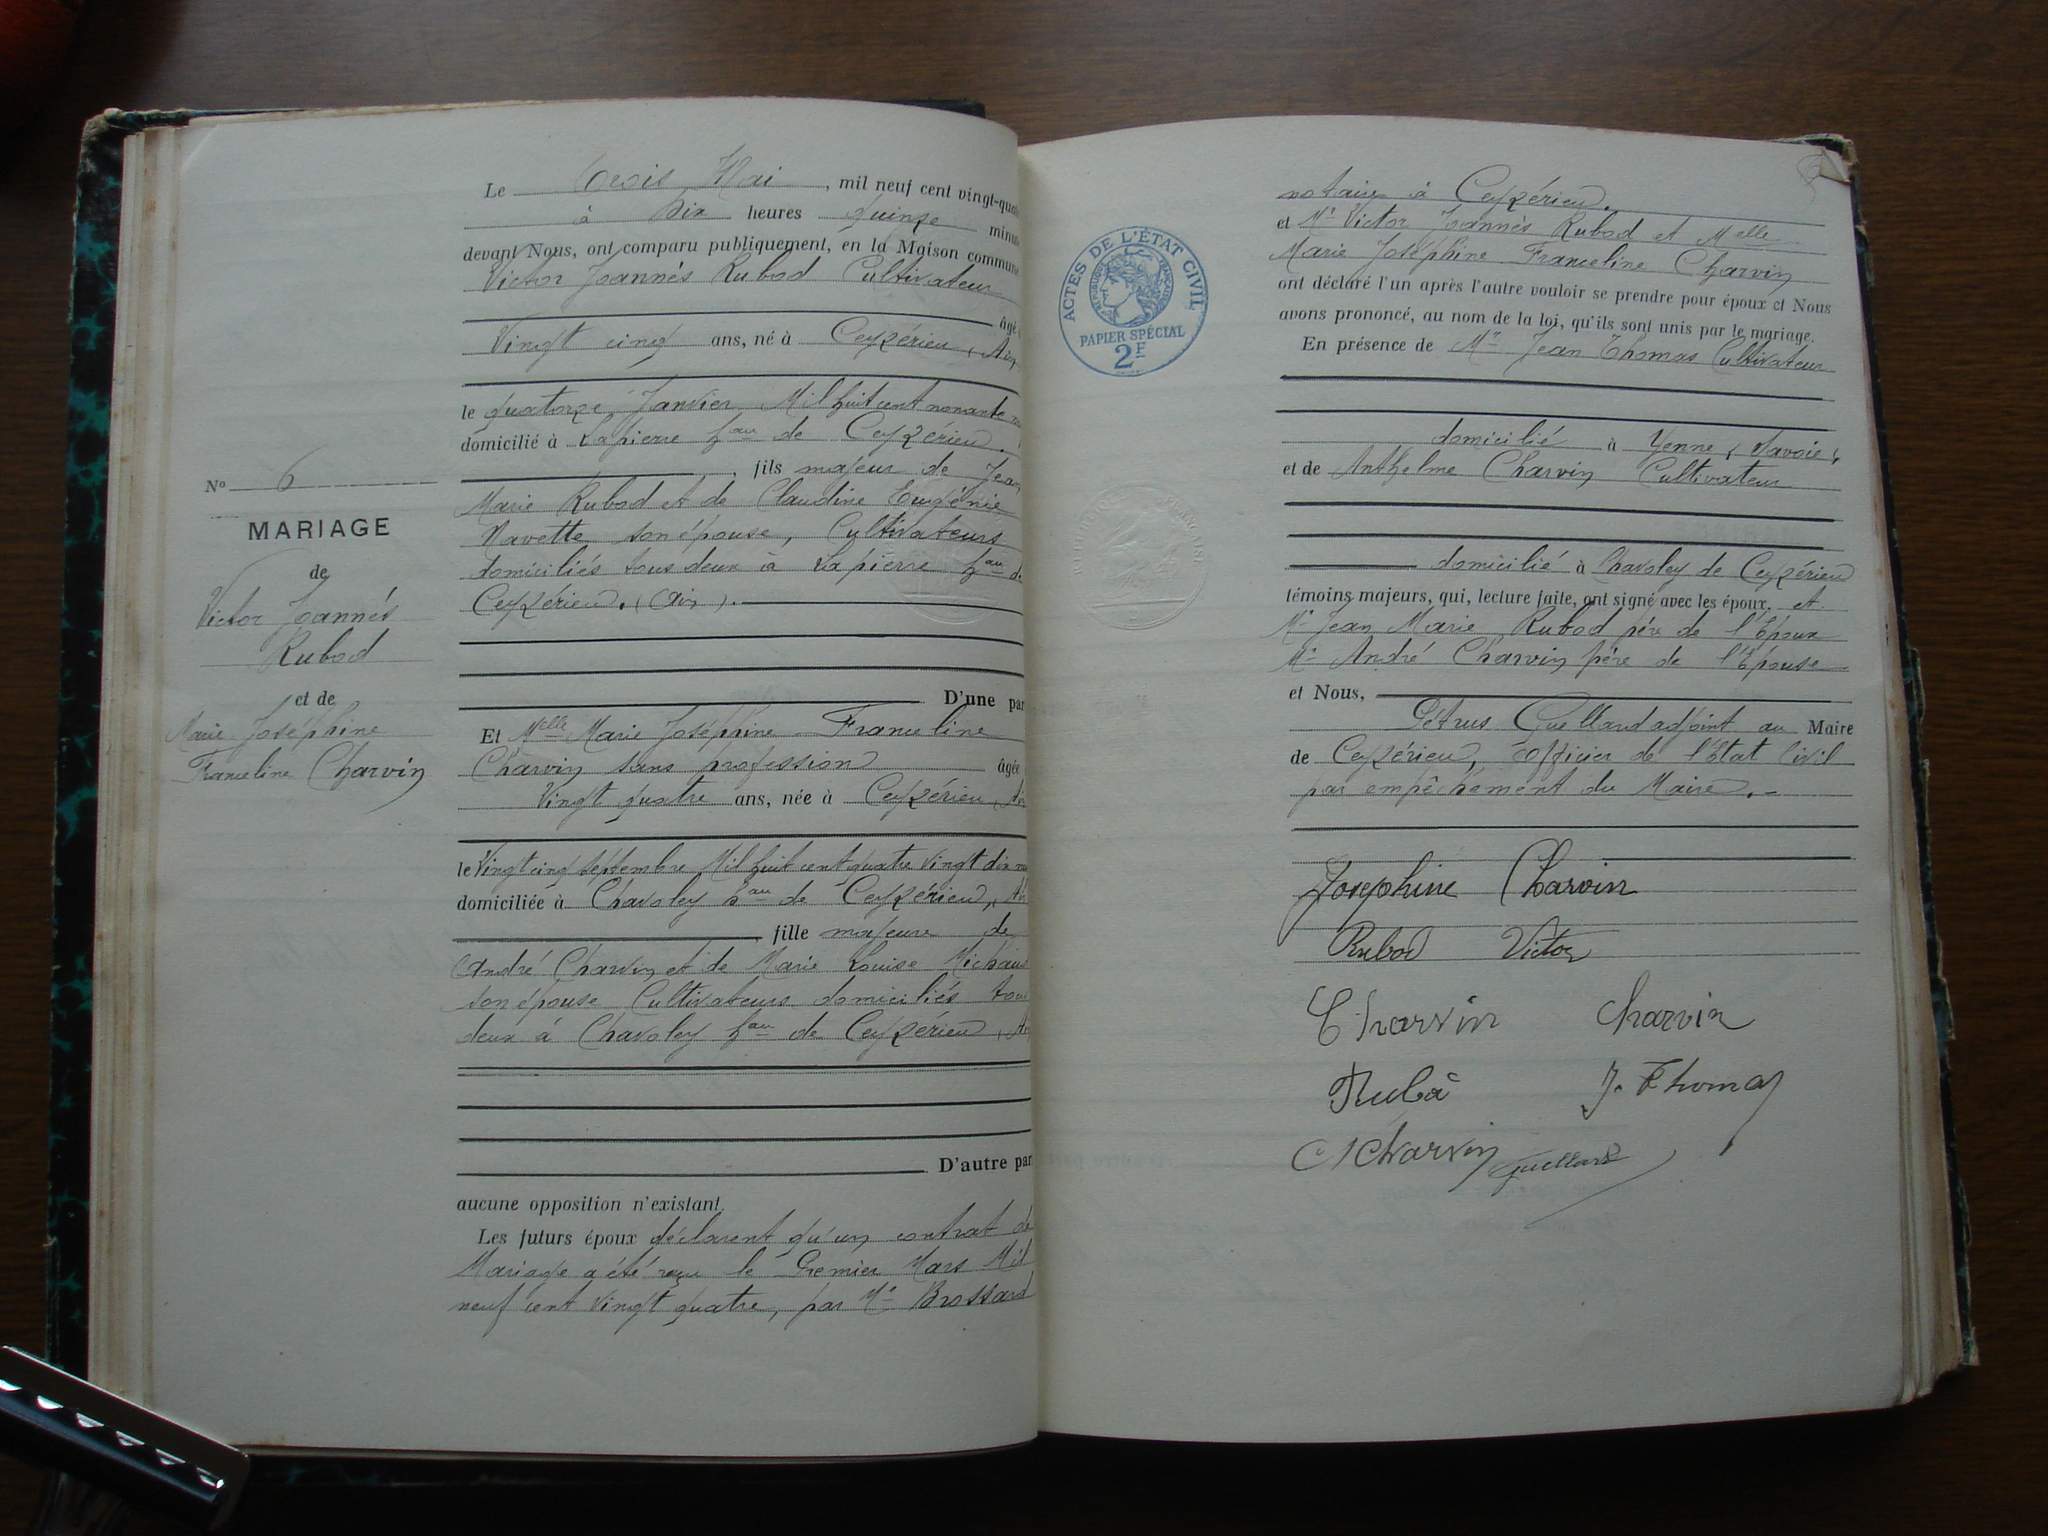 Le Trois Mai, mil neuf cent vingt-quat
à Dix heures quinze minut
devant Nous, ont comparu publiquement, en la Maison commune
Victor Joannès Rubod Cultivateur
âgé
Vingt cinq ans, né à Ceyzérieu (Ain)
le quatorze Janvier Mil huit cent nonante
domicilié à Lapierre hau de Ceyzérieu.
fils majeur de Jean
Marie Rubod et de Claudine Eugénie
Navette son épouse, Cultivateurs
domiciliés tous deux à Lapierre hau de
Ceyzérieu. (Ain).
D'une par
Et Melle Marie Joséphine Franceline
Charvin sans profession âgée
Vingt quatre ans, née à Ceyzérieu (Ain
le Vingt cinq septembre Mil huit cent quatre vingt dix
domiciliée à Chavoley hau de Ceyzérieu, Ain
fille majeure de
André Charvin et de Marie Louise Michaud
son épouse Cultivateurs domiciliés tous
deux à Chavoley hau de Ceyzérieu (Ain
D'autre par
aucune opposition n'existant.
Les futurs époux déclarent qu'un contrat de
Mariage a été reçu le Premier Mars Mil
neuf cent vingt quatre, par Me Brossard
No 6
MARIAGE
de
Victor Joannès
Rubod
et de
Marie Joséphine
Franceline Charvin
notaire à Ceyzérieu.
et Mr Victor Joannès Rubod et Melle
Marie Joséphine Franceline Charvin
ont déclaré l'un après l'autre vouloir se prendre pour époux et Nous
avons prononcé, au nom de la loi, qu'ils sont unis par le mariage.
En présence de Mr Jean Thomas Cultivateur
domicilié à Yenne (Savoie)
et de Anthelme Charvin Cultivateur
domicilié à Chavoley de Ceyzérieu
témoins majeurs, qui, lecture faite, ont signé avec les époux. et
Mr Jean Marie Rubod père de l'Epoux
Mr André Charvin père de l'Epouse
et Nous,
Pétrus Guelland adjoint au Maire
de Ceyzérieu, Officier de l'Etat Civil
par empêchement du Maire.
Josephine Charvin
Rubod Victor
Charvin Charvin
Rubod J. Thomas
A Charvin Guelland
ACTES DE L'ÉTAT CIVIL
RÉPUBLIQUE FRANÇAISE
PAPIER SPÉCIAL
2F